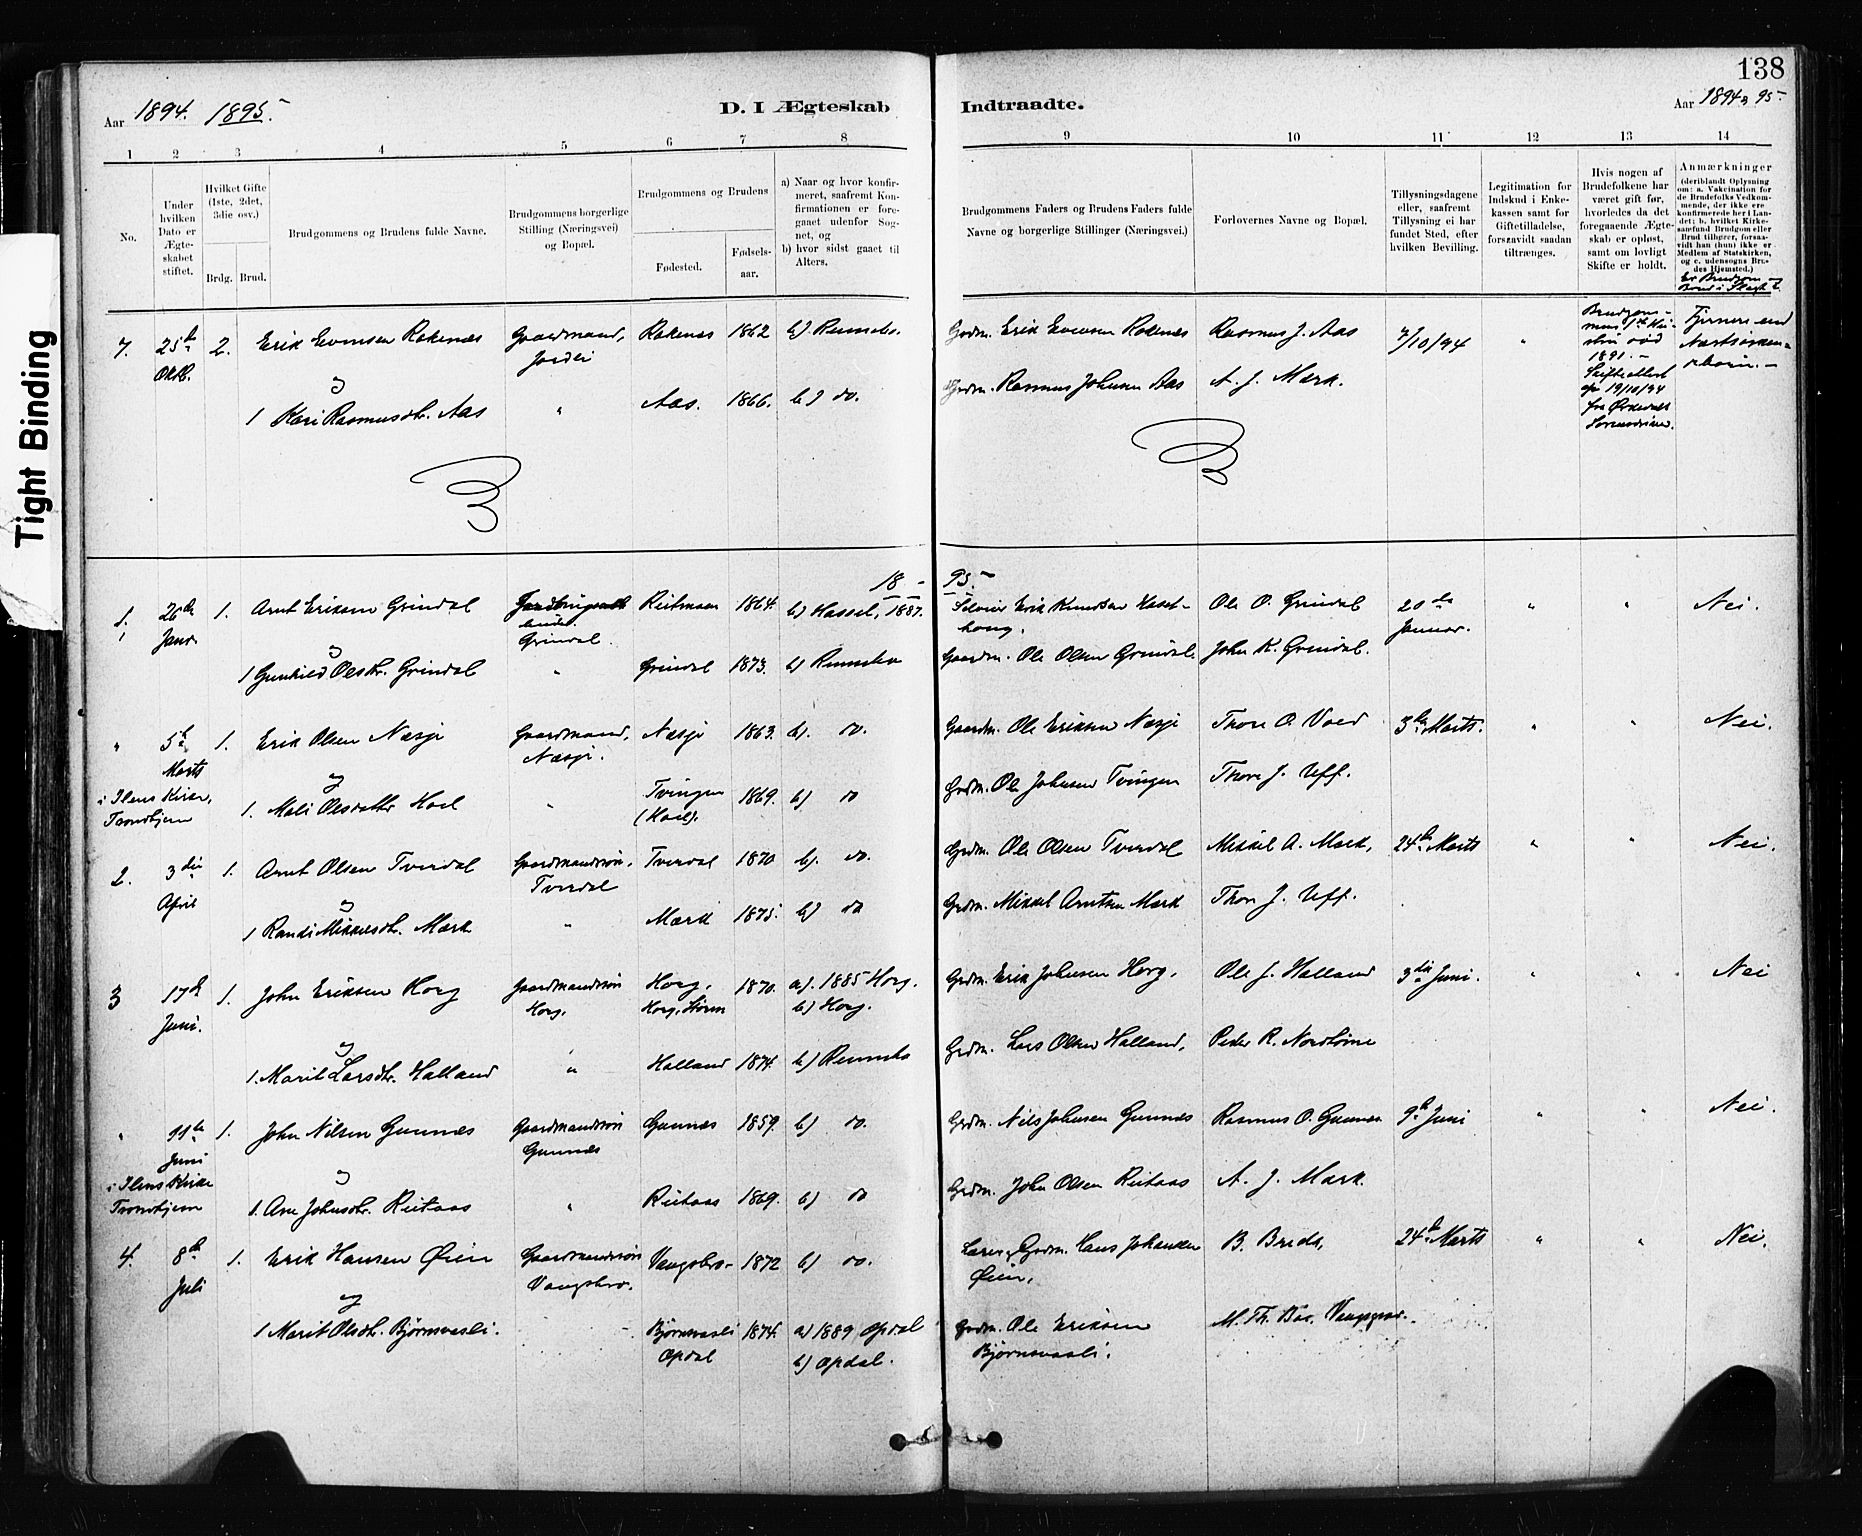 138
Aar 1894. 1895.
D. I Ægteskab Indtraadte.
Aar 1894 & 95.
1 2 3 4 5 6 7 8 9 10 11 12 13 14
No.
Under hvilken Dato er Ægteskabet stiftet.
Hvilket Gifte (1ste, 2det, 3die osv.)
Brdg. Brud.
Brudgommens og Brudens fulde Navne.
Brudgommens borgerlige Stilling (Næringsvei) og Bopæl.
Brudgommens og Brudens
Fødested. Fødselsaar.
a) Naar og hvor konfirmeret, saafremt Konfirmationen er foregaaet udenfor Sognet, og
b) hvor sidst gaaet til Alters.
Brudgommens Faders og Brudens Faders fulde Navne og borgerlige Stillinger (Næringsvei.)
Forlovernes Navne og Bopæl.
Tillysningsdagene eller, saafremt Tillysning ei har fundet Sted, efter hvilken Bevilling.
Legitimation for Indskud i Enkekassen samt for Giftetilladelse, forsaavidt saadan tiltrænges.
Hvis nogen af Brudefolkene har været gift før, hvorledes da det foregaaende Ægteskab er opløst, samt om lovligt Skifte er holdt.
Anmærkninger
(deriblandt Oplysning om: a. Vakcination for de Brudefolks Vedkommende, der ikke ere konfirmerede her i Landet; b. hvilket Kirkesamfund Brudgom eller Brud tilhører, forsaavidt han (hun) ikke er Medlem af Statskirken, og c. udensogns Brudes Hjemsted.)
Tight Binding
7. 25de Oktb. 2. Erik Evensen Rokenæs Gaardmand, Rokenæs 1862 b). Rennebo. Gadm. Erik Evensen Rokenæs Rasmus J. Aas 7/10/94 "
og
1 Kari Rasmusdtr. Aas " Aas. 1866. b) do. Gadm. Rasmus Johnsen Aas A. J. Mærk.
18 – 95. –
1. 26de Janr. 1. Arnt Eriksen Grindal Grindal. 1864. b) Hassel, 1887. Erik Knudsen Ole O. Grindal 20de Januar. " " Nei.
og
1 Gunhild Olsdtr. Grindal " Grindal 1873. b) Rennebo Gaardm. Ole Olsen Grindal. John K. Grindal.
" 5te Marts 1. Erik Olsen Næsje Gaardmand, Næsje. Næsje 1863. b). do. Gaardm. Ole Eriksen Næsje Thore O. Vold 3die Marts. " " Nei.
i Ilens Kirke, Trondhjem
og
1. Mali Olsdatter Hoel " Tvingen (Hoel). 1869. b) do Gadm. Ole Johnsen Tvingen Thore J. Uff.
2. 3die April 1. Arnt Olsen Tverdal Gaardmandssøn, Tverdal Tverdal 1870 b). do. Gadm. Ole Olsen Tverdal Mikkel A. Mærk, 24de Marts " " Nei.
og
1 Randi Mikkelsdtr. Mærk " Mærk 1875. b) do Gadm. Mikkel Arntsen Mærk Thore J. Uff.
3 17de Juni. 1. John Eriksen Horg Gaardmandssøn Horg. Horg, Horg, Støren 1870. a). 1885 Horg. b) Horg. Gadm. Erik Johnsen Horg. Ole J. Halland 3die Juni. " " Nei
og
1. Marit Larsdtr. Halland " Halland 1874. b) Rennebo Gadm. Lars Olsen Halland, Peder R. Nordtømme
" 11te Juni 1. John Nilsen Gunnæs Gaardmandssøn Gunnæs Gunnæs 1859. b) do. Gadm. Nils Johnsen Gunnæs Rasmus O. Gunnæs 9de Juni " " Nei.
i Ilens Kirke Trondhjem
og
1. Johnsdtr. Reitaas " Reitaas 1869. b) do Gadm. John Olsen Reitaas A. J. Mærk
4. 8de Juli 1. Erik Hansen Øien Gaardmandssøn Vangsbro. Vangsbro 1872 b) do. Gadm. Hans Johansen Øien, B. Breda, 24de Marts " " Nei.
og
1 Marit Olsdtr. Bjørnsaasli. Bjørnsaasli Opdal 1874. a) 1889 Opdal b) Opdal. Gadm. Ole Eriksen Bjørnsaasli. M. Th. Boe,